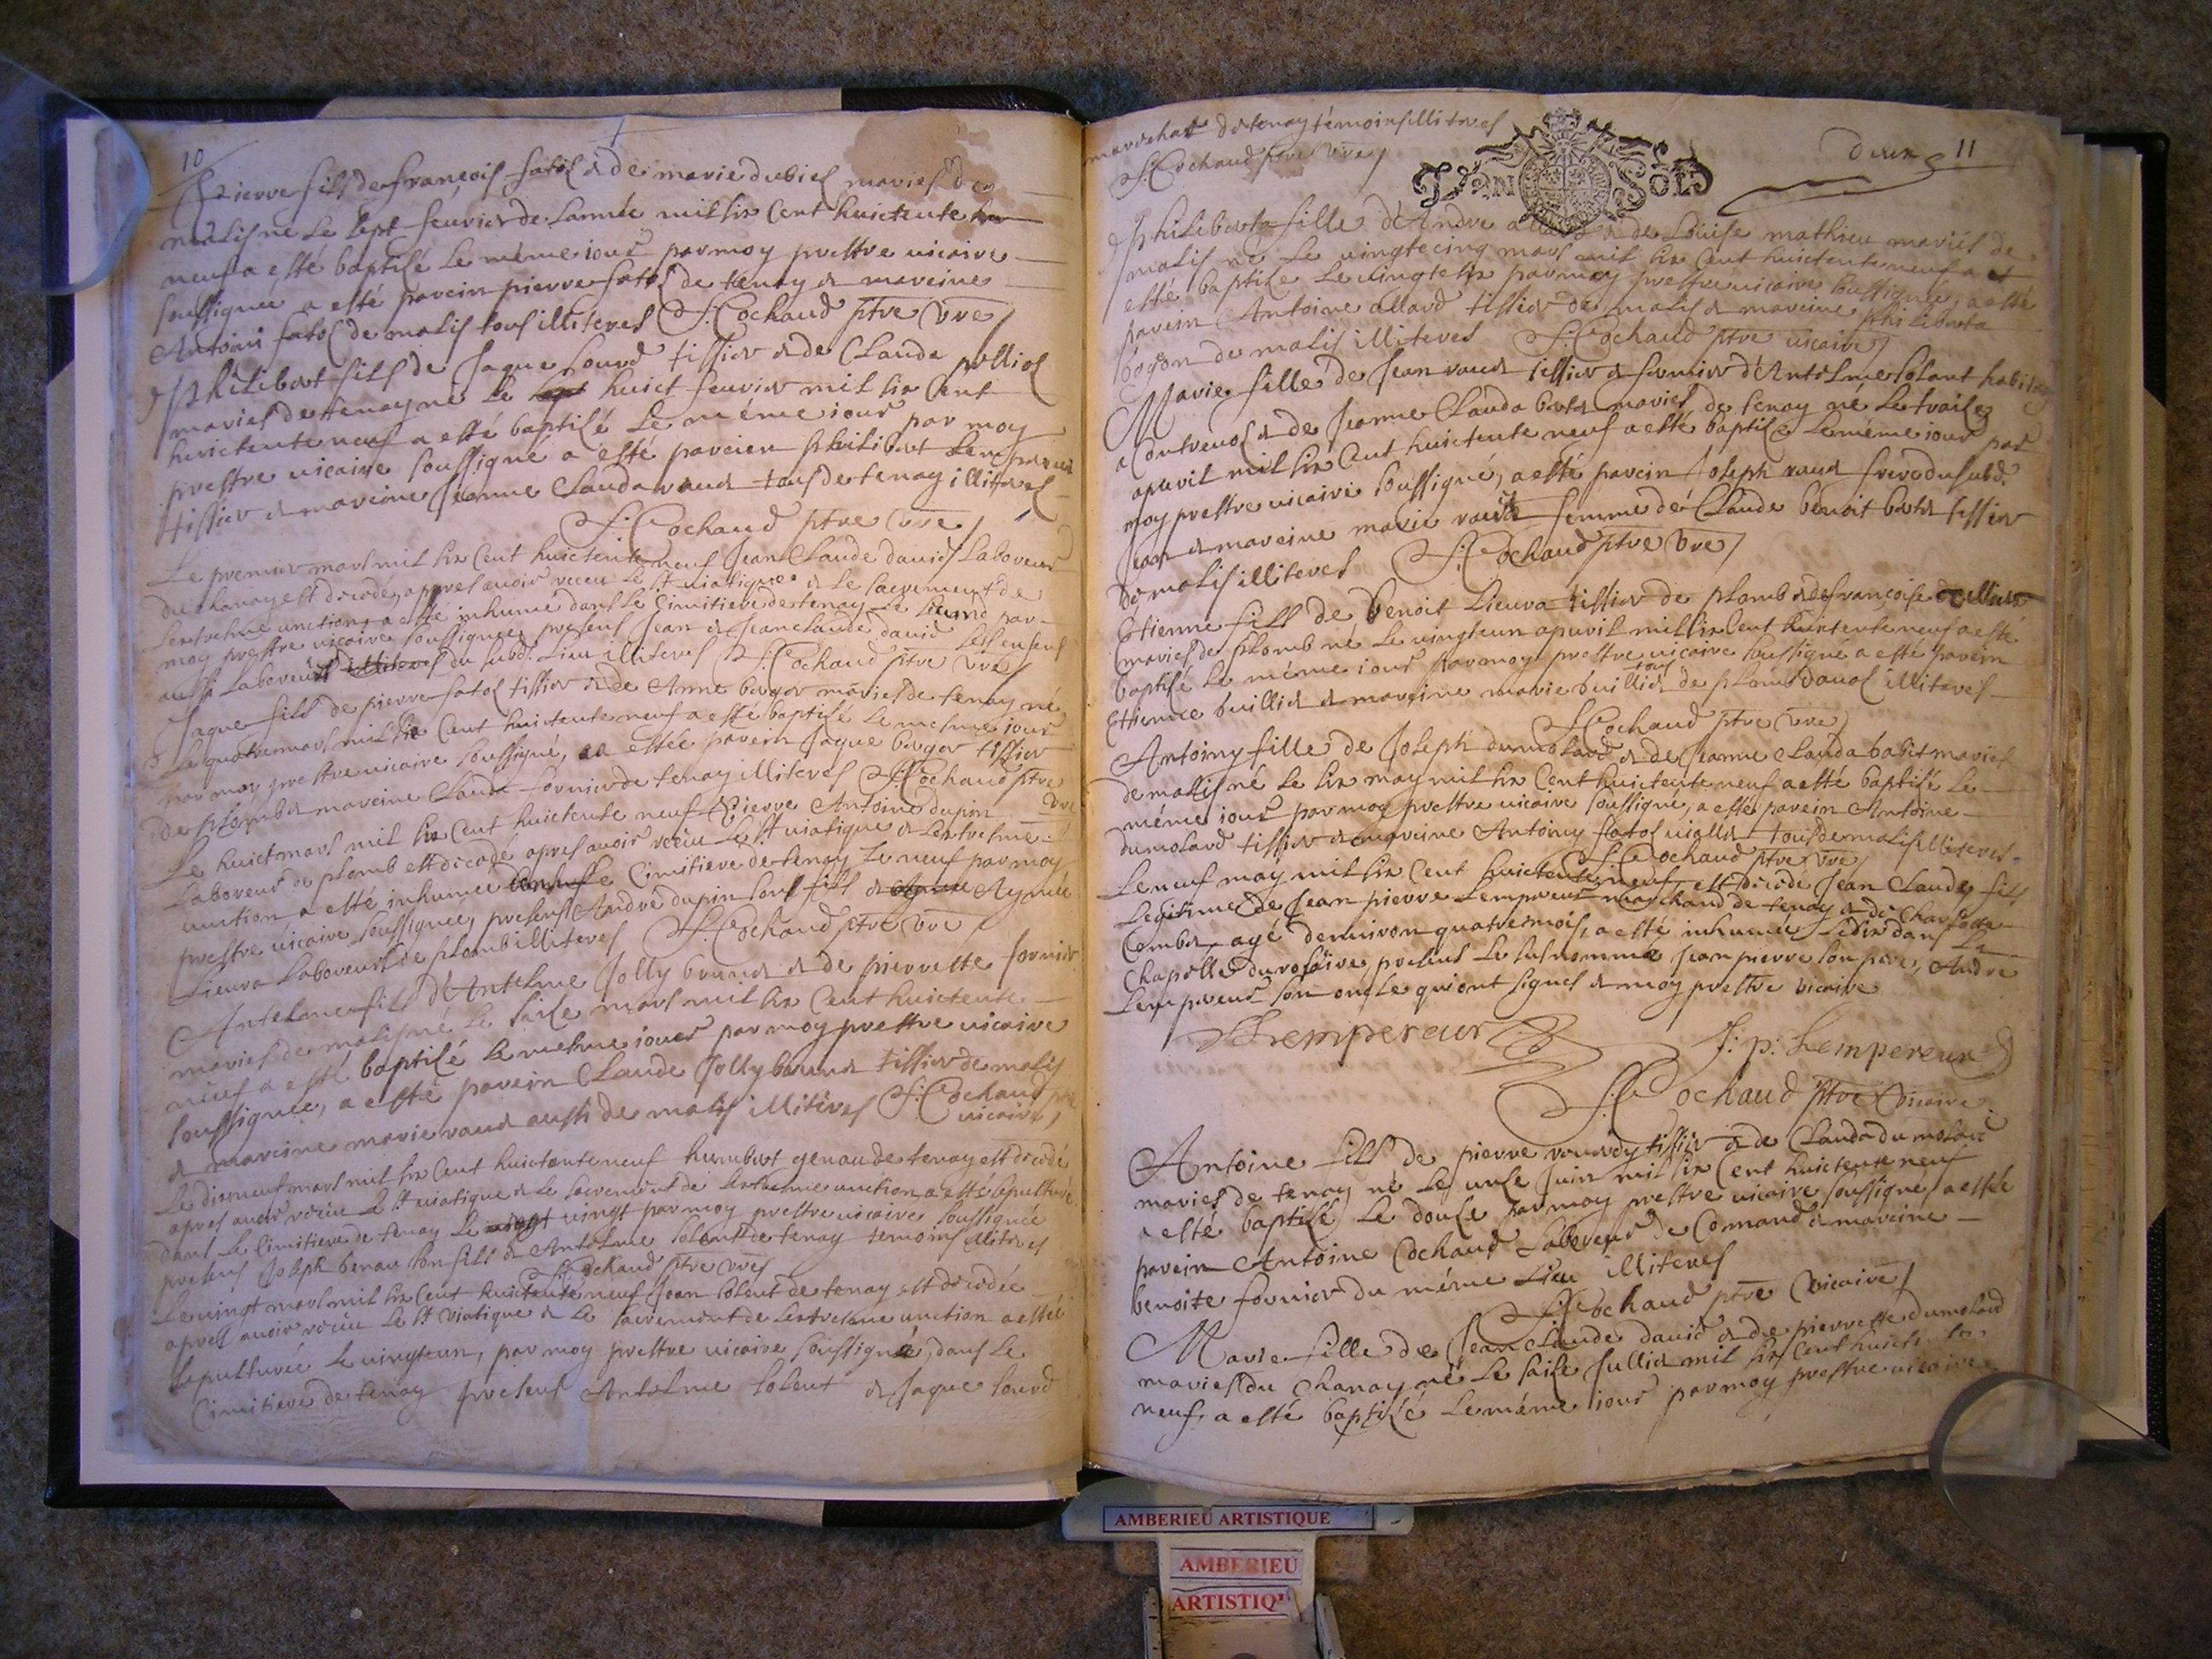 10
Pierre fils de françois fatol & de marie dubiel mariés de
malis né le sept feuvier de lannée mil six cent huictente
neuf a esté baptisé le même iour par moy prestre vicaire
soussigné a esté parein pierre fatol de tenay & mareine
Antoini fatol de malis tous illiteres J: Cochaud ptre vre
Philibert fils de Jaque sourd tissier & de Claude
mariés de tenay né le huict feuvier mil six cent
huictente neuf a esté baptisé le même iour par moy
prestre vicaire soussigné a esté parein philibert
tissier & mareine Jeanne Clauda vaud tous de tenay illiteres
J: Cochaud ptre vre
Le premier mars mil six cent huictente neuf Jean Claude david laboureur
du chanay est décédé, apres avoir receu le st viatique & le sacrement de
lextreme unction, a esté inhumé dans le cimitiere de tenay le par
moy prestre vicaire soussigné, presens Jean & Jean claude david
aussi laboureurs du susd. lieu illiteres J: Cochaud ptre vre
Jaque fils de pierre fatol tissier & de Anne berger mariés de tenay né
le quatre mars mil six cent huictente neuf a esté baptisé le mesme iour
par moy prestre vicaire soussigné, a estée parein Jaque berger tissier
de plomb & mareine Clauda fornier de tenay illiteres J: Cochaud ptre
vre
Le huict mars mil six cent huictente neuf pierre Antoine dupin
laboureur de plomb est décédé apres avoir receu le st viatique & lextresme
unction a esté inhumé cimitiere de tenay le neuf par moy
prestre vicaire soussigné, presens André dupin son fils & Aymé
Lieura laboureurs de plomb illiteres J: Cochaud ptre vre
Antelme fils d'Antelme Jolly brunet & de pierrette fornier
mariés de malis né le saise mars mil six cent huictente
neuf a esté baptisé le mesme iour par moy prestre vicaire
soussigné, a esté parein Claude Jolly brunet tissier de malis
& mareine marie vaud aussi de malis illiteres J: Cochaud ptre
vicaire
Le dixneuf mars mil six cent huictente neuf humbert genau de tenay est décédé
apres avoir receu le st viatique & le sacrement de lextreme unction, a esté sepulturé
dans le cimitiere de tenay le vingt par moy prestre vicaire soussigné
presens Joseph benau son fils & Antelme solent de tenay temoins illiteres
J: Cochaud ptre vre
Le vingt mars mil six cent huictente neuf Jean solent de tenay est décédée
apres avoir receu le st viatique & le sacrement de lextreme unction a esté
sepulturée le vingtun, par moy prestre vicaire soussigné, dans le
cimitiere de tenay presens Antelme solent & Jaque sourd
marechal de tenay témoins illiteres
J: Cochaud ptre vre
GEN SOLS
deux 11
Philiberta fille d'Andre allard & de Louise mathieu mariés de
malis né le vingtecinq mars mil six cent huictente neuf a
esté baptisé le vingtesix par moy prestre vicaire soussigné, a esté
parein Antoine allard tissier de malis & mareine philiberta
bozon de malis illiteres J: Cochaud ptre vicaire
Marie fille de Jean vaud tissier & fermier d'Antelme solant
a Contrevos & de Jeanne Clauda bertet mariés de tenay né le traise
apuril mil six cent huictente neuf a esté baptisé le même iour par
moy prestre vicaire soussigné, a esté parein Joseph vaud frere du susd.
Jean & mareine marie vaud femme de Claude benoit bertet tissier
de malis illiteres J: Cochaud ptre vre
Etienne fils de benoit Lieura tissier de plomb & de françoise
mariés de plomb né le vingteun apuril mil six cent huictente neuf a esté
baptisé le même iour par moy prestre vicaire soussigné a esté parein
Ethienne buillid & mareine marie buillid tous de plomb davos illiteres
J: Cochaud ptre vre
Antoiny fille de Joseph dumolard & de Jeanne Clauda babit mariés
de malis né le six may mil six cent huictente neuf a esté baptisé le
même iour par moy prestre vicaire soussigné, a esté parein Antoine
dumolard tissier & mareine Antoiny fatol viallet tous de malis illiteres
J: Cochaud ptre vre
Le neuf may mil six cent huictente neuf, est décédé Jean Claude, fils
legitime de Jean pierre Lempereur marchand de tenay & de Charlotte
Combet, agé denviron quatre mois, a esté inhumé le dix dans la
chapelle du rosaire, presens le susnommé Jean pierre son pere, André
Lempereur son oncle qui ont signés & moy prestre vicaire
Lempereur
J: p: Lempereur
J: Cochaud ptre vicaire
Antoine fils de pierre tissier & de Clauda du molard
mariés de tenay né le unse Juin mil six cent huictente neuf
a esté baptisé le douse par moy prestre vicaire soussigné, a esté
parein Antoine Cochaud laboureur de Conand & mareine
benoite fornier du même lieu illiteres
J: Cochaud ptre vicaire
Marie fille de Jean Claude david & de pierrette dumolard
mariés du Chanay né le saise Jullied mil six cent huictente
neuf, a esté baptisé le même iour par moy prestre vicaire
AMBERIEU ARTISTIQUE
AMBERIEU
ARTISTIQ'